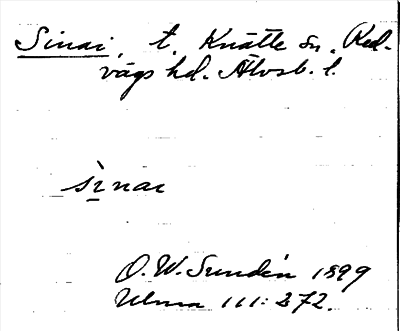 Sinai, t. Knätte sn, Red-
vägs hd. Älvsb. l.
sìnai
O. W. Sundén 1899
Ulma 111:272.